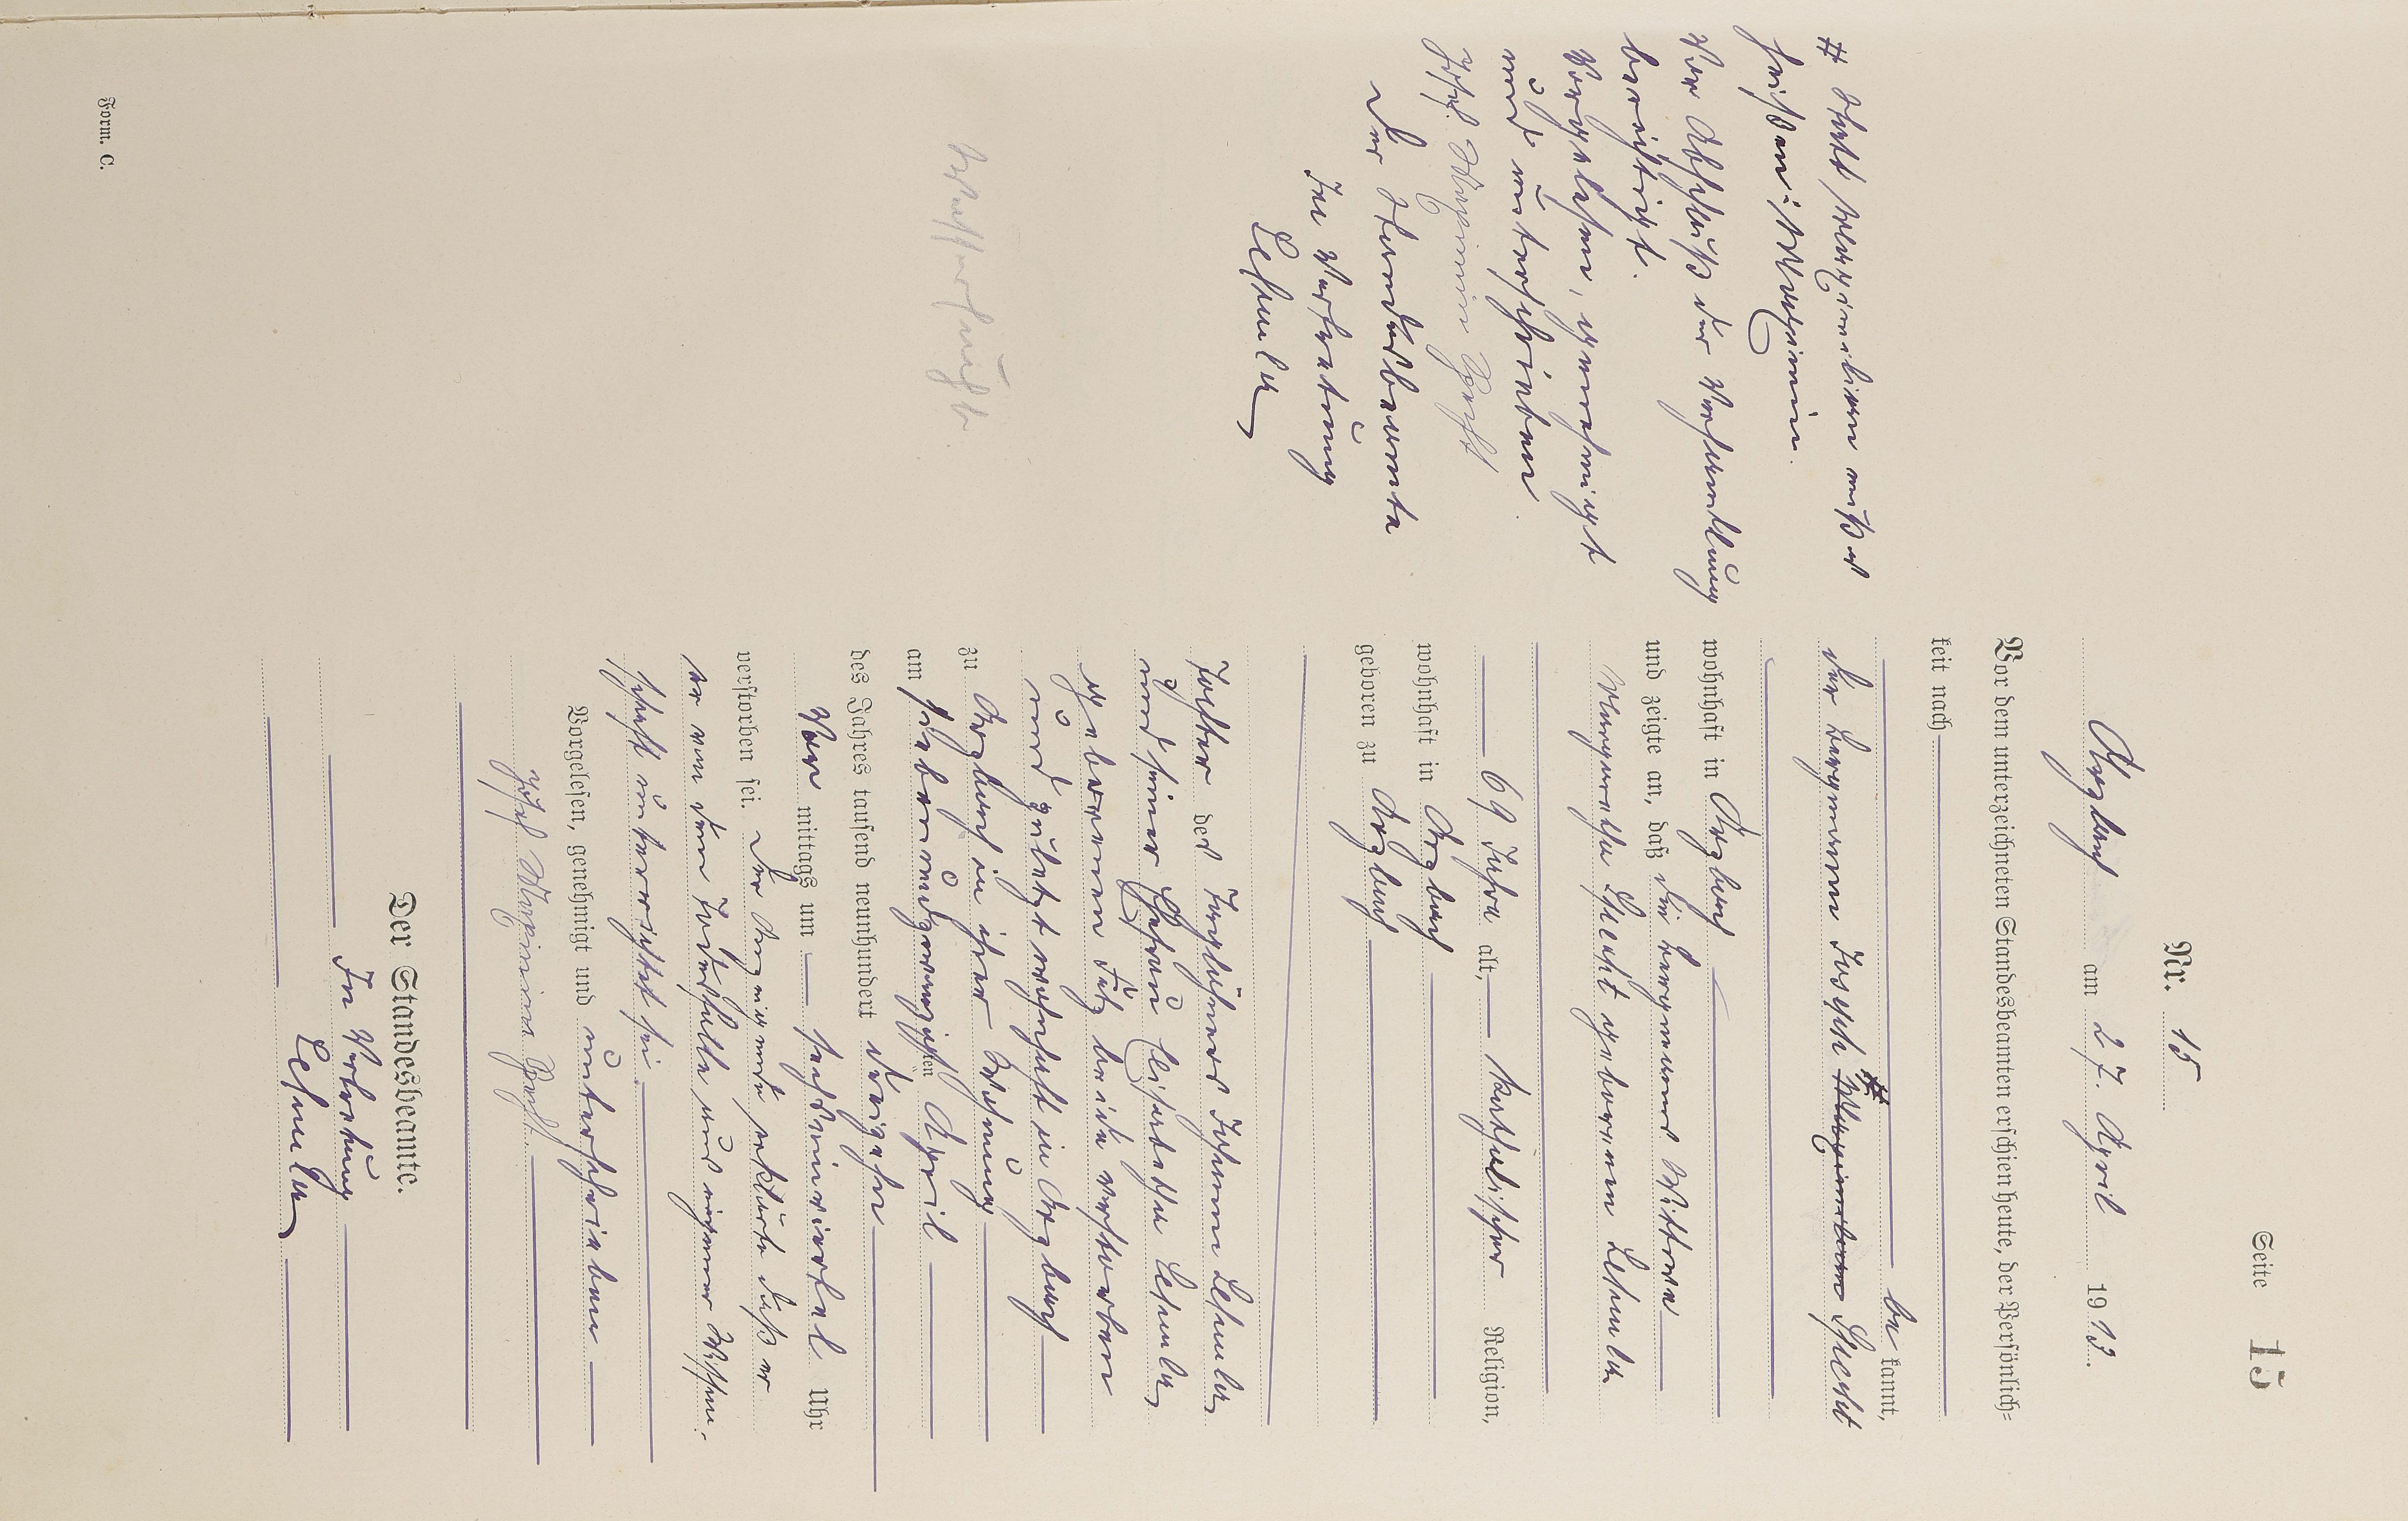 Seite 15
Nr. 15
Arzbach am 27. April 1913.
Vor dem unterzeichneten Standesbeamten erschien heute, der Persönlich=
keit nach
be kannt,
der Bergmann Joseph # Maximilian Specht
wohnhaft in Arzbach
und zeigte an, daß die Bergmanns Wittwe
Margaretha Specht geborenen Lehmler
69 Jahre alt, katholischer Religion,
wohnhaft in Arzbach
geboren zu Arzbach
Tochter des Taglöhners Johann Lehmler
und seiner Ehefrau Elisabetha Lehmler,
geborenen beide verstorben
und zuletzt wohnhaft in Arzbach
zu Arzbach in ihrer Wohnung
am siebenundzwanzigsten April
des Jahres tausend neunhundert dreizehn
Vor mittags um sechseinviertel Uhr
verstorben sei. Der Anzeigende erklärte daß er
er von dem Todesfalle aus eigener Wissen-
schaft unterrichtet sei.
Vorgelesen, genehmigt und unterschrieben
Josef Maximin Specht
Der Standesbeamte.
In Vertretung
Lehmler
# Statt Maximilian muß es
heißen: Maximin.
Vor Abschluß der Verhandlung
berichtigt.
Vorgelesen, genehmigt
und unterschrieben
Josef Maximin Specht
Der Standesbeamte
In Vertretung
Lehmler
Form. C.